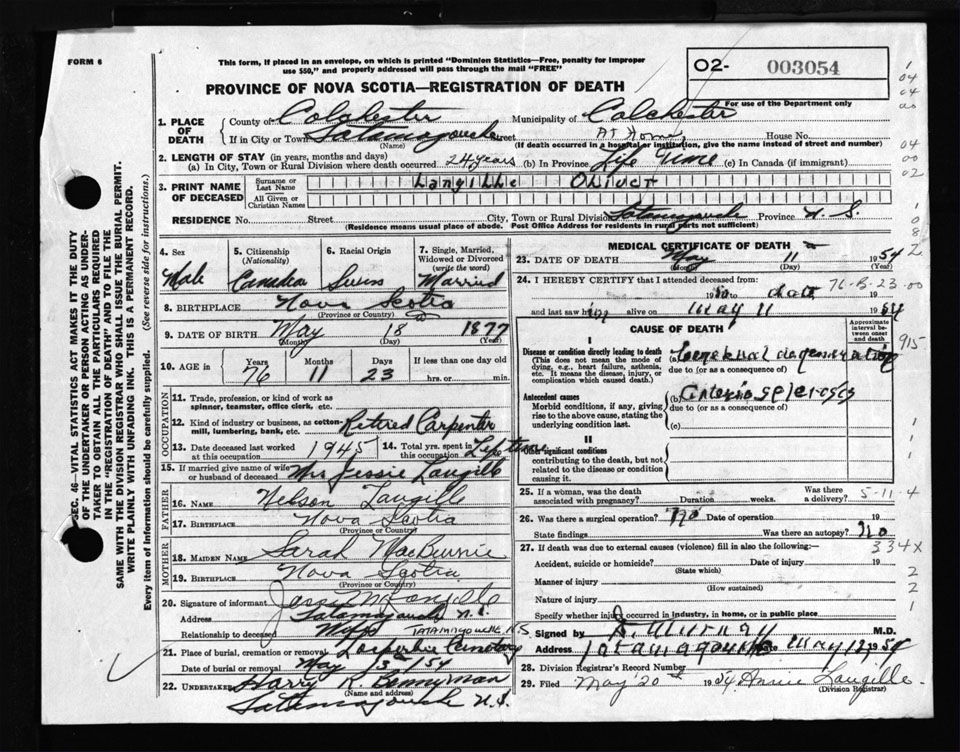 FORM 6
This form, if placed in an envelope, on which is printed "Dominion Statistics—Free, penalty for improper
use $50," and properly addressed will pass through the mail "FREE"
O2- 003054
For use of the Department only
PROVINCE OF NOVA SCOTIA—REGISTRATION OF DEATH
SEC. 46—VITAL STATISTICS ACT MAKES IT THE DUTY
OF THE UNDERTAKER OR PERSON ACTING AS UNDER-
TAKER TO OBTAIN ALL THE PARTICULARS REQUIRED
IN THE "REGISTRATION OF DEATH" AND TO FILE THE
SAME WITH THE DIVISION REGISTRAR WHO SHALL ISSUE THE BURIAL PERMIT.
WRITE PLAINLY WITH UNFADING INK. THIS IS A PERMANENT RECORD.
Every item of information should be carefully supplied. (See reverse side for instructions.)
1. PLACE OF DEATH
County of Colchester Municipality of Colchester
If in City or Town Tatamagouche Street At Home House No.
(Name) (If death occurred in a hospital or institution, give the name instead of street and number)
2. LENGTH OF STAY (in years, months and days)
(a) In City, Town or Rural Division where death occurred 24 years (b) In Province Life Time (c) In Canada (if immigrant)
3. PRINT NAME OF DECEASED
Surname or Last Name Langille Oliver
All Given or Christian Names
RESIDENCE No. Street City, Town or Rural Division Tatamagouche Province N. S.
(Residence means usual place of abode. Post Office Address for residents in rural parts not sufficient)
4. Sex Male
5. Citizenship (Nationality) Canadian
6. Racial Origin Swiss
7. Single, Married, Widowed or Divorced (write the word) Married
8. BIRTHPLACE Nova Scotia
(Province or Country)
9. DATE OF BIRTH May 18 1877
(Month) (Day) (Year)
10. AGE in Years 76 Months 11 Days 23 If less than one day old hrs. or min.
OCCUPATION
11. Trade, profession or kind of work as spinner, teamster, office clerk, etc.
12. Kind of industry or business, as cotton-mill, lumbering, bank, etc. Retired Carpenter
13. Date deceased last worked at this occupation 1945
14. Total yrs. spent in this occupation Life time
15. If married give name of wife or husband of deceased Mrs Jessie Langille
FATHER
16. NAME Nelson Langille
17. BIRTHPLACE Nova Scotia
(Province or Country)
MOTHER
18. MAIDEN NAME Sarah
19. BIRTHPLACE Nova Scotia
(Province or Country)
20. Signature of informant Langille
Address Tatamagouche N. S.
Relationship to deceased Wife TATAMAGOUCHE NS
21. Place of burial, cremation or removal Cemetery
Date of burial or removal May 13 /54
22. UNDERTAKER Harry R. Bennyman
(Name and address)
Tatamagouche N.S.
MEDICAL CERTIFICATE OF DEATH
23. DATE OF DEATH May 11 1954
(Month) (Day) (Year)
24. I HEREBY CERTIFY that I attended deceased from:
19 to date 19
76-B-23-00
and last saw him alive on May 11 1954
CAUSE OF DEATH
Approximate interval between onset and death
I
Disease or condition directly leading to death
(This does not mean the mode of dying, e.g., heart failure, asthenia, etc. It means the disease, injury, or complication which caused death.)
(a) degeneration
due to (or as a consequence of)
Antecedent causes
Morbid conditions, if any, giving rise to the above cause, stating the underlying condition last.
(b)
due to (or as a consequence of)
(c)
II
Other significant conditions
contributing to the death, but not related to the disease or condition causing it.
25. If a woman, was the death associated with pregnancy? Duration weeks. Was there a delivery? 5-11-4
26. Was there a surgical operation? No Date of operation 19
State findings Was there an autopsy? No
27. If death was due to external causes (violence) fill in also the following:— 334X
Accident, suicide or homicide? Date of injury 19
(State which)
Manner of injury
(How sustained)
Nature of injury
Specify whether injury occurred in industry, in home, or in public place
Signed by D. Murray M.D.
Address Tatamagouche Date May 12, 1954
28. Division Registrar's Record Number
29. Filed May 20 1954 Annie Langille
(Division Registrar)
1
04
04
00
04
00
02
1
0
8
2
915
1
1
1
2
2
1